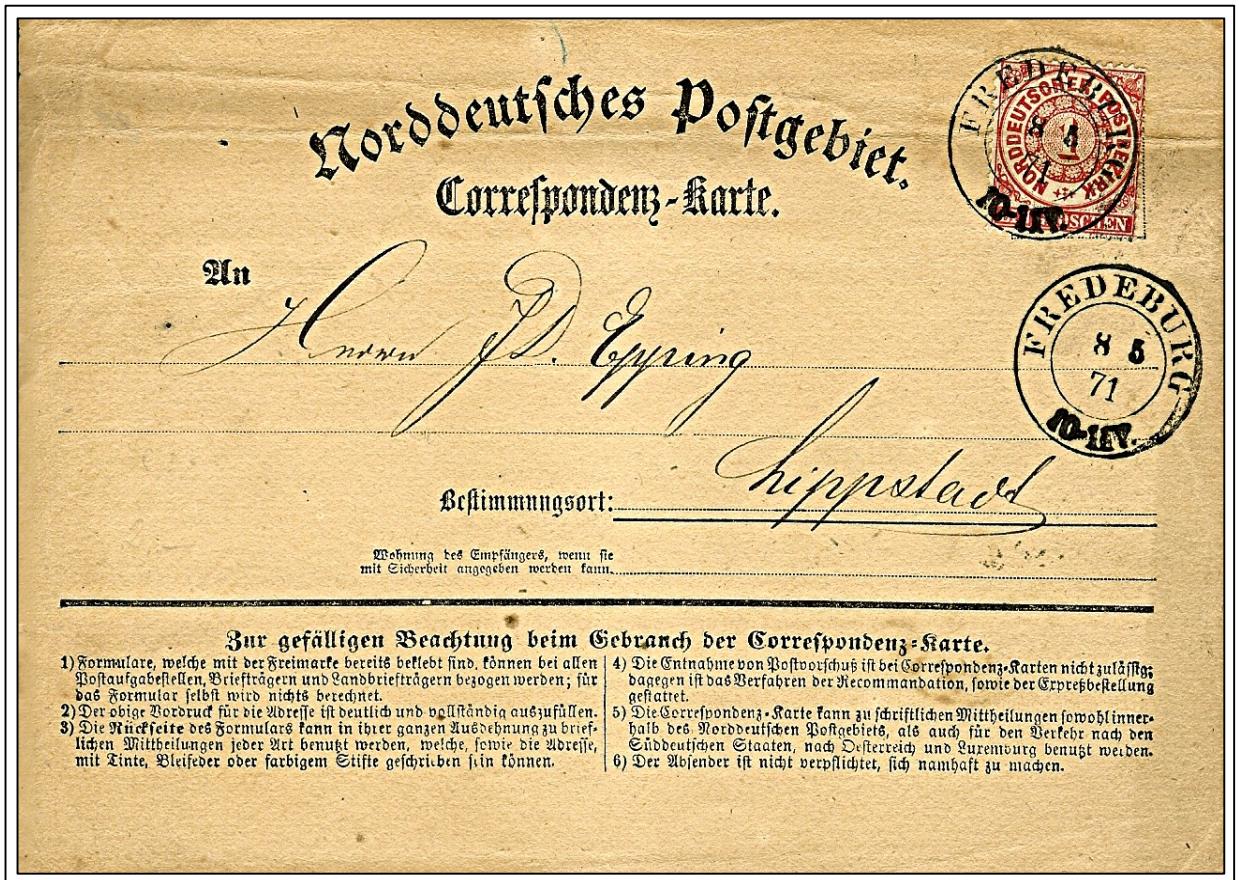 Norddeutsches Postgebiet.
Correspondenz-Karte.
NORDDEUTSCHER POSTBEZIRK
1
GROSCHEN
FREDEBURG
8 5
71
10-11V.
An
Herrn J.D. Epping
FREDEBURG
8 5
71
10-11V.
Lippstadt
Bestimmungsort:
Wohnung des Empfängers, wenn sie
mit Sicherheit angegeben werden kann.
Zur gefälligen Beachtung beim Gebrauch der Correspondenz-Karte.
1) Formulare, welche mit der Freimarke bereits beklebt sind, können bei allen
Postaufgabestellen, Briefträgern und Landbriefträgern bezogen werden; für
das Formular selbst wird nichts berechnet.
2) Der obige Vordruck für die Adresse ist deutlich und vollständig auszufüllen.
3) Die Rückseite des Formulars kann in ihrer ganzen Ausdehnung zu brief-
lichen Mittheilungen jeder Art benutzt werden, welche, sowie die Adresse,
mit Tinte, Bleifeder oder farbigem Stifte geschrieben sein können.
4) Die Entnahme von Postvorschuß ist bei Correspondenz-Karten nicht zulässig;
dagegen ist das Verfahren der Recommandation, sowie der Expreßbestellung
gestattet.
5) Die Correspondenz-Karte kann zu schriftlichen Mittheilungen sowohl inner-
halb des Norddeutschen Postgebiets, als auch für den Verkehr nach den
Süddeutschen Staaten, nach Oesterreich und Luxemburg benutzt werden.
6) Der Absender ist nicht verpflichtet, sich namhaft zu machen.